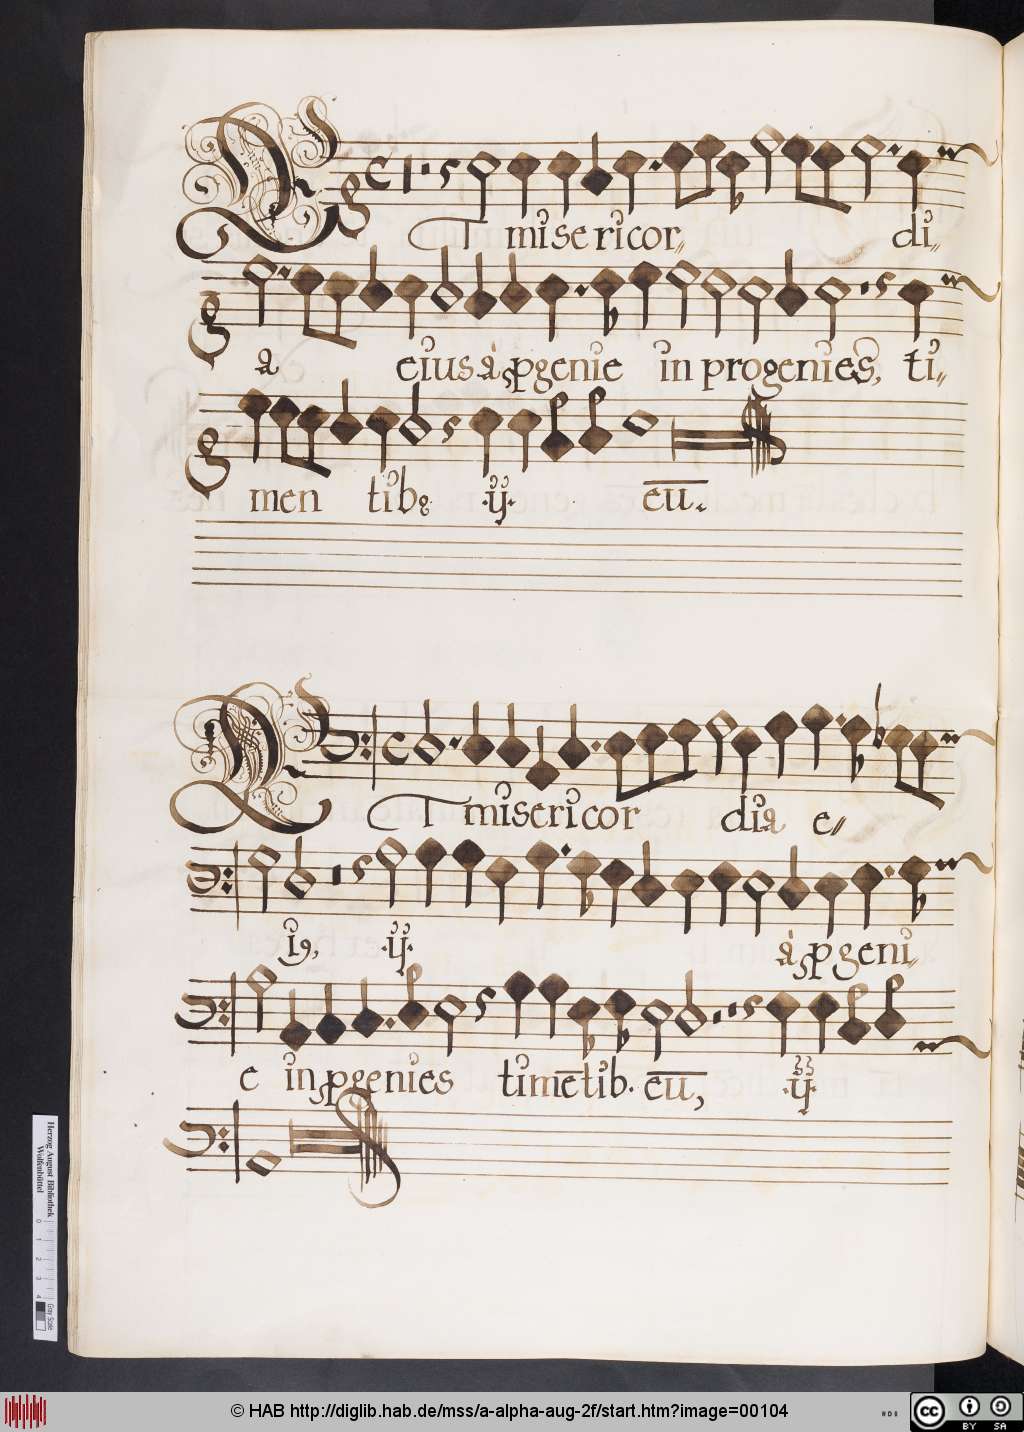 ET misericor„ di„
a eius à ꝓgenie in progenies, ti„
men tibꝰ .ij. eū.
ET misericor dia e„
iꝰ, .ij. à ꝓgeni„
e in ꝓgenies timētib. eū, .ij.
Herzog August Bibliothek
Wolfenbüttel
0 1 2 3 4
Gray Scale
© HAB http://diglib.hab.de/mss/a-alpha-aug-2f/start.htm?image=00104
cc BY SA